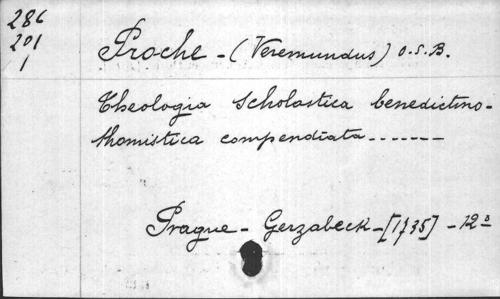 286
201
1
Proche - (Veremundus) O.S.B.
Theologia scholastica benedictino-
thomistica compendiata -------
Prague - Gerzabeck - [1735] - 12º